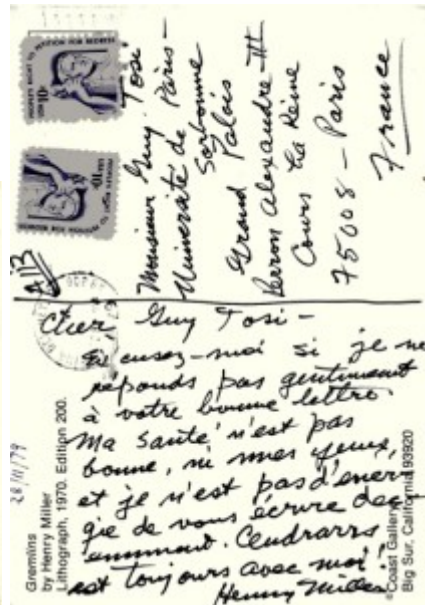 PEOPLE'S RIGHT TO PETITION FOR REDRESS
USA 10c
PEOPLE'S RIGHT TO PETITION FOR REDRESS
USA 10c
Monsieur Guy Tosi
Université de Paris-
Sorbonne
Grand Palais
Perron Alexandre-III
Cours La Reine
75008 - Paris
France
AIR
Cher Guy Tosi -
Excusez-moi si je ne
réponds pas gentiment
à votre bonne lettre.
Ma santé n'est pas
bonne, ni mes yeux,
et je n'est pas d'ener-
gie de vous écrire dec-
emment. Cendrars
est toujours avec moi!
Henry Miller
28/11/79
Gremlins
by Henry Miller
Lithograph, 1970. Edition 200.
©Coast Gallery
Big Sur, California 93920